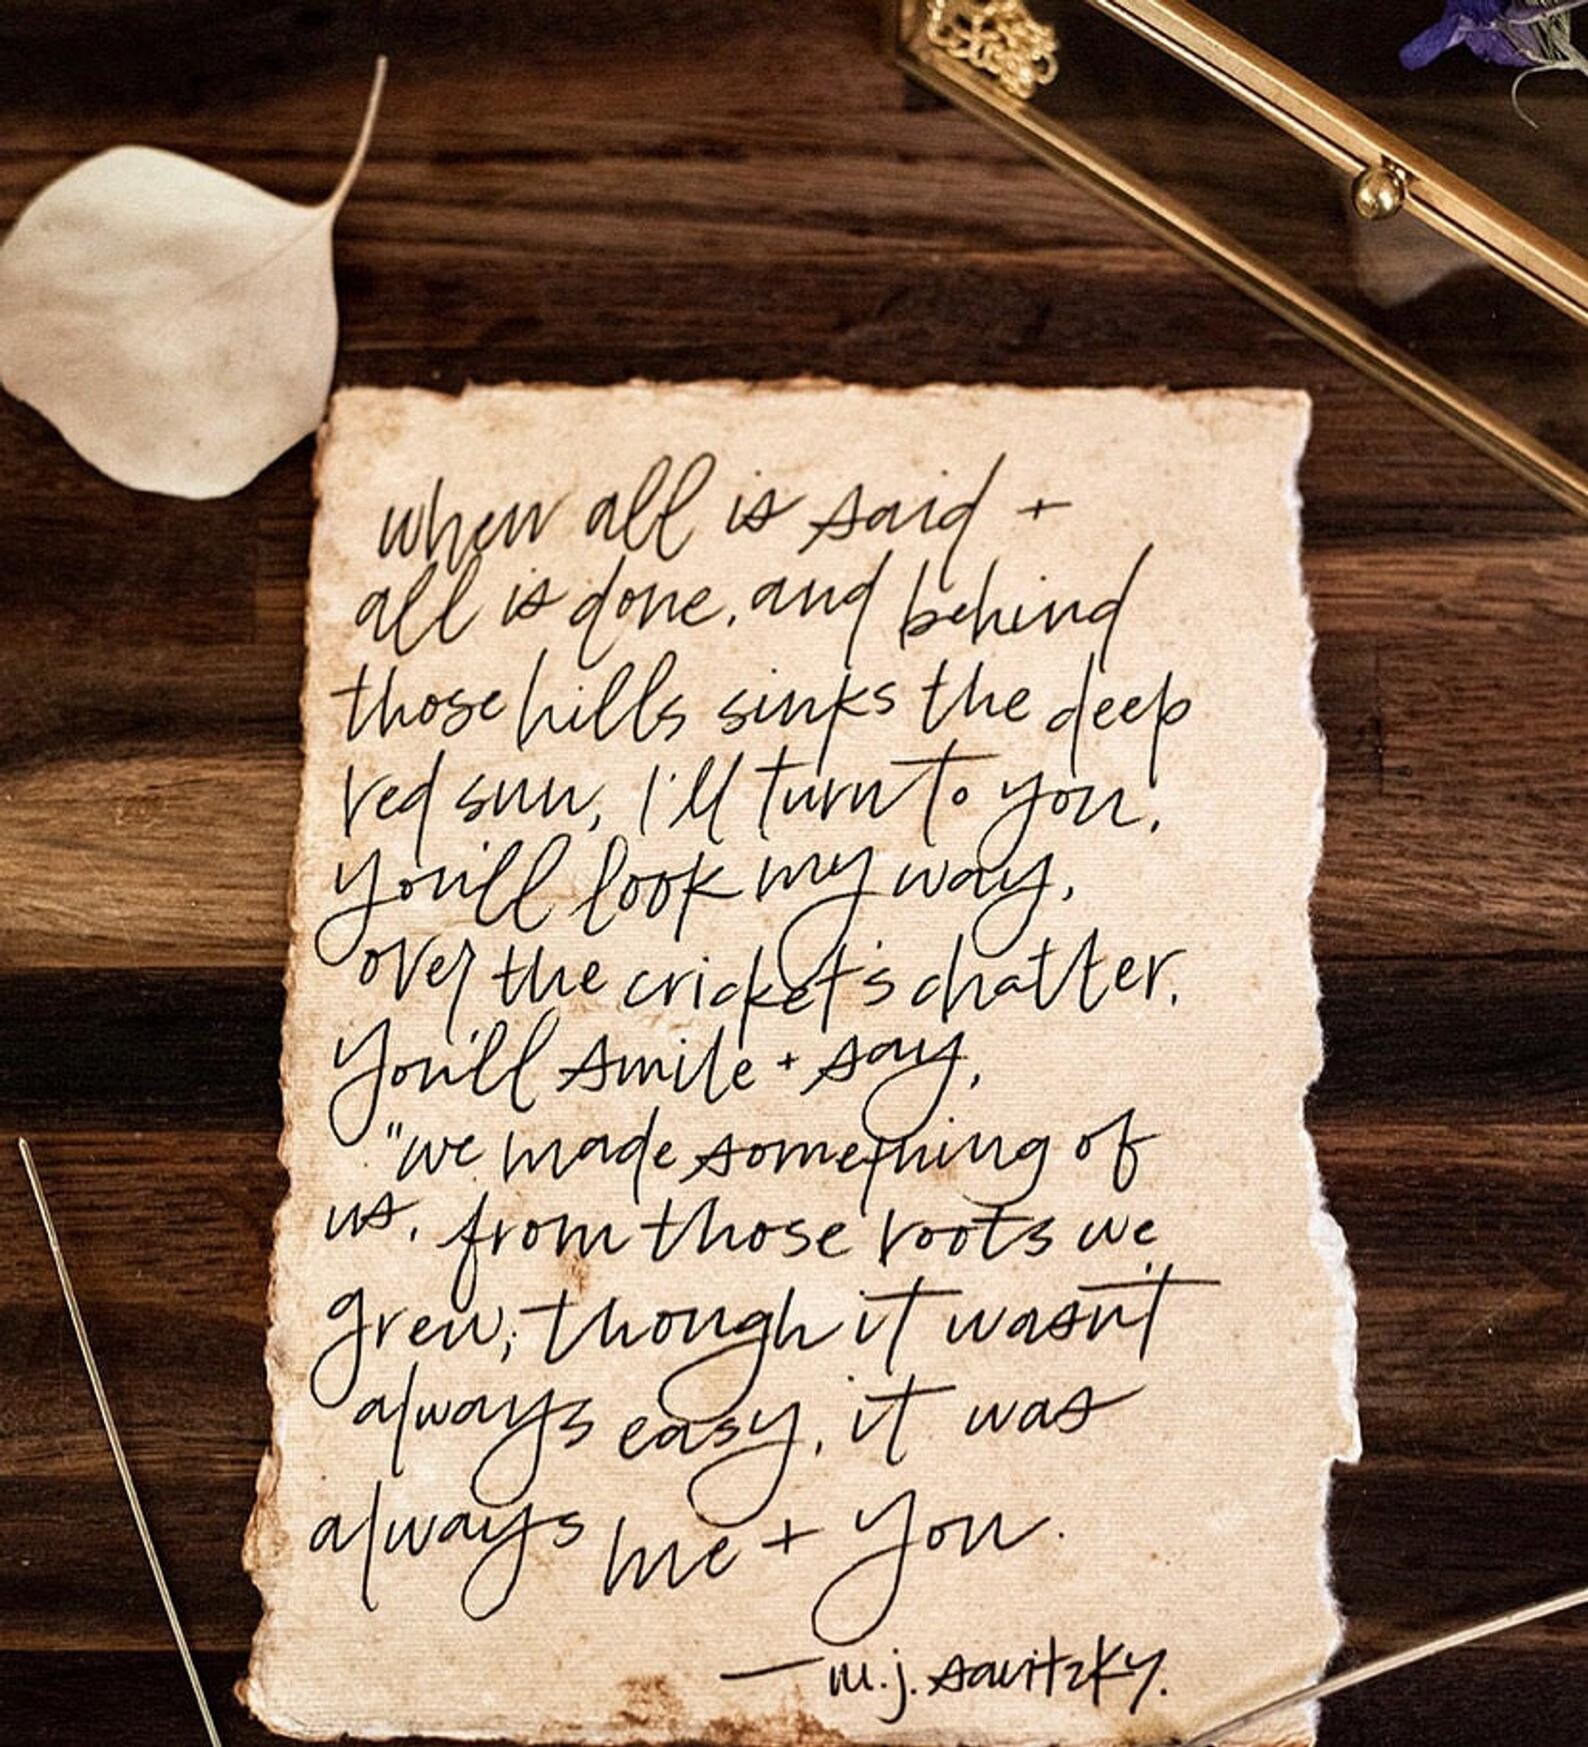 when all is said +
all is done, and behind
those hills sinks the deep
red sun, I'll turn to you,
you'll look my way,
over the cricket's chatter,
you'll smile + say,
"we made something of
us, from those roots we
grew; though it wasn't
always easy, it was
always me + you.
—m.j. savitzky.